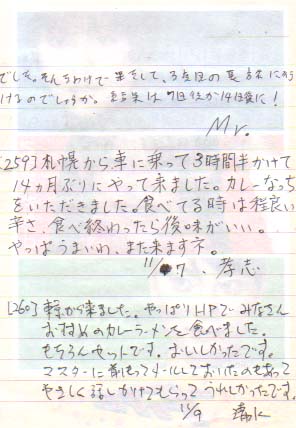 でした。そんなわけで 果たして、3点目の 真
けるのでしょうか。 結果は 7日後か14日後に!
Mr.
[259] 札幌から車に乗って3時間半かけて
14ヵ月ぶりにやって来ました。カレーなっち
をいただきました。食べてる時は程良い
辛さ、食べ終わったら後味がいい。
やっぱうまいわ、また来ます。
11/ 7、孝志
[260] 東京から来ました。やっぱりHPで みなさん
おすすめのカレーラーメンを食べました。
もちろんセットです。おいしかったです。
マスターに前もってメールしておいたのもあって
やさしく話しかけてもらって うれしかったです。
11/9 清水